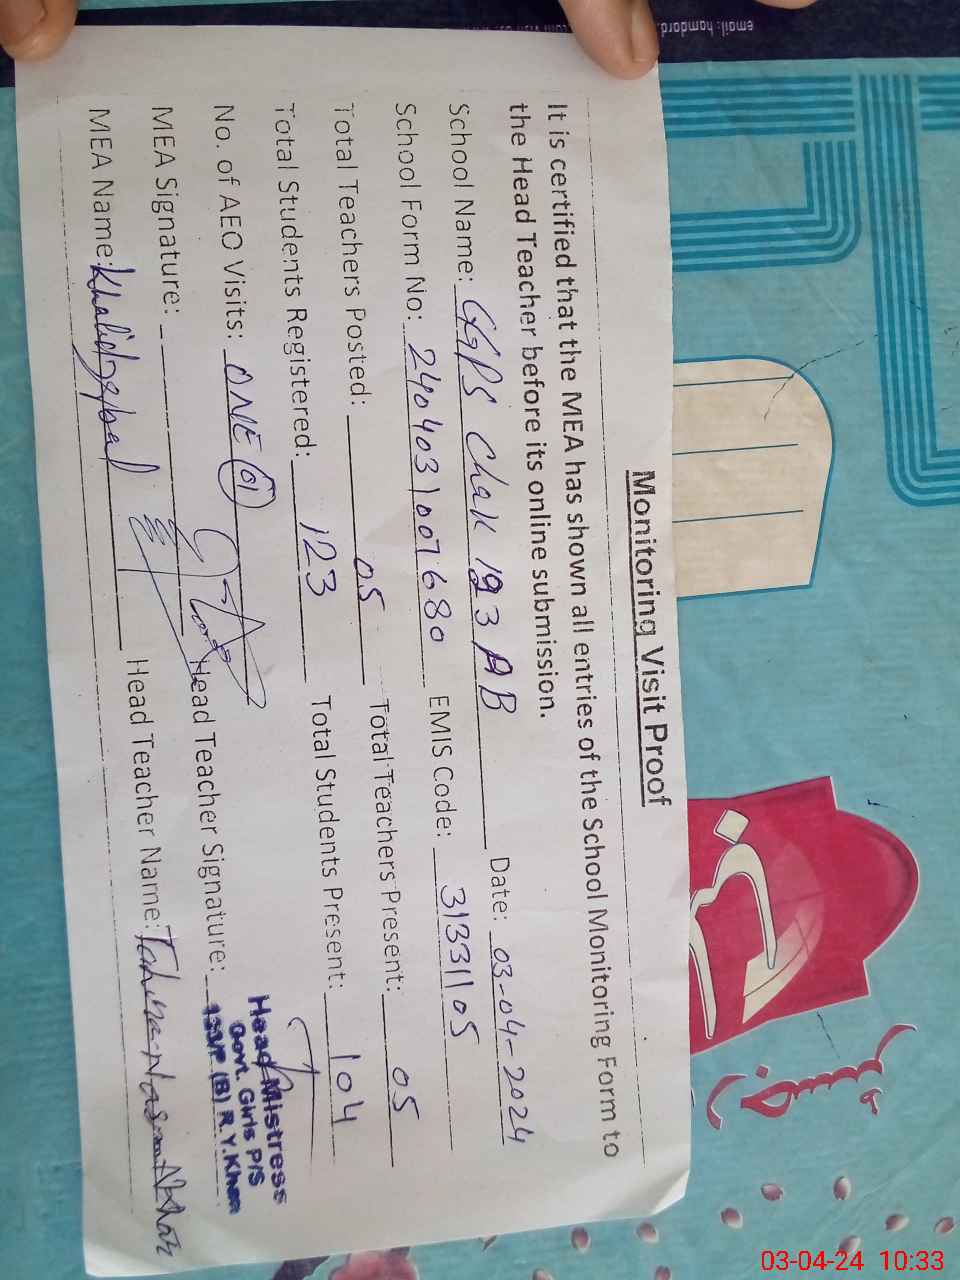 Monitoring Visit Proof
It is certified that the MEA has shown all entries of the School Monitoring Form to
the Head Teacher before its online submission.
School Name: GGPS Chak 193 AB Date: 03-04-2024
School Form No: 2404031007680 EMIS Code: 31331105
Total Teachers Posted: 05 Total Teachers Present: 05
Total Students Registered: 123 Total Students Present: 104
No. of AEO Visits: ONE (01)
MEA Signature: Head Teacher Signature:
Head Mistress
Govt. Girls P/S
(B) R.Y.Khan
MEA Name: Khalid Iqbal Head Teacher Name:
email: hamdard
03-04-24 10:33